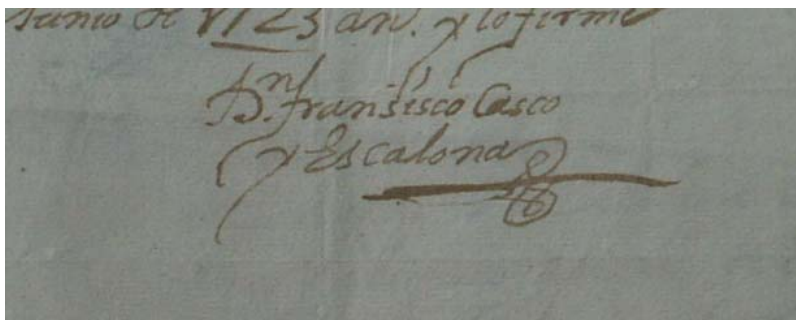 Junio de 1723 an. y lo firme
Dn. fransisco Casco
y Escalona